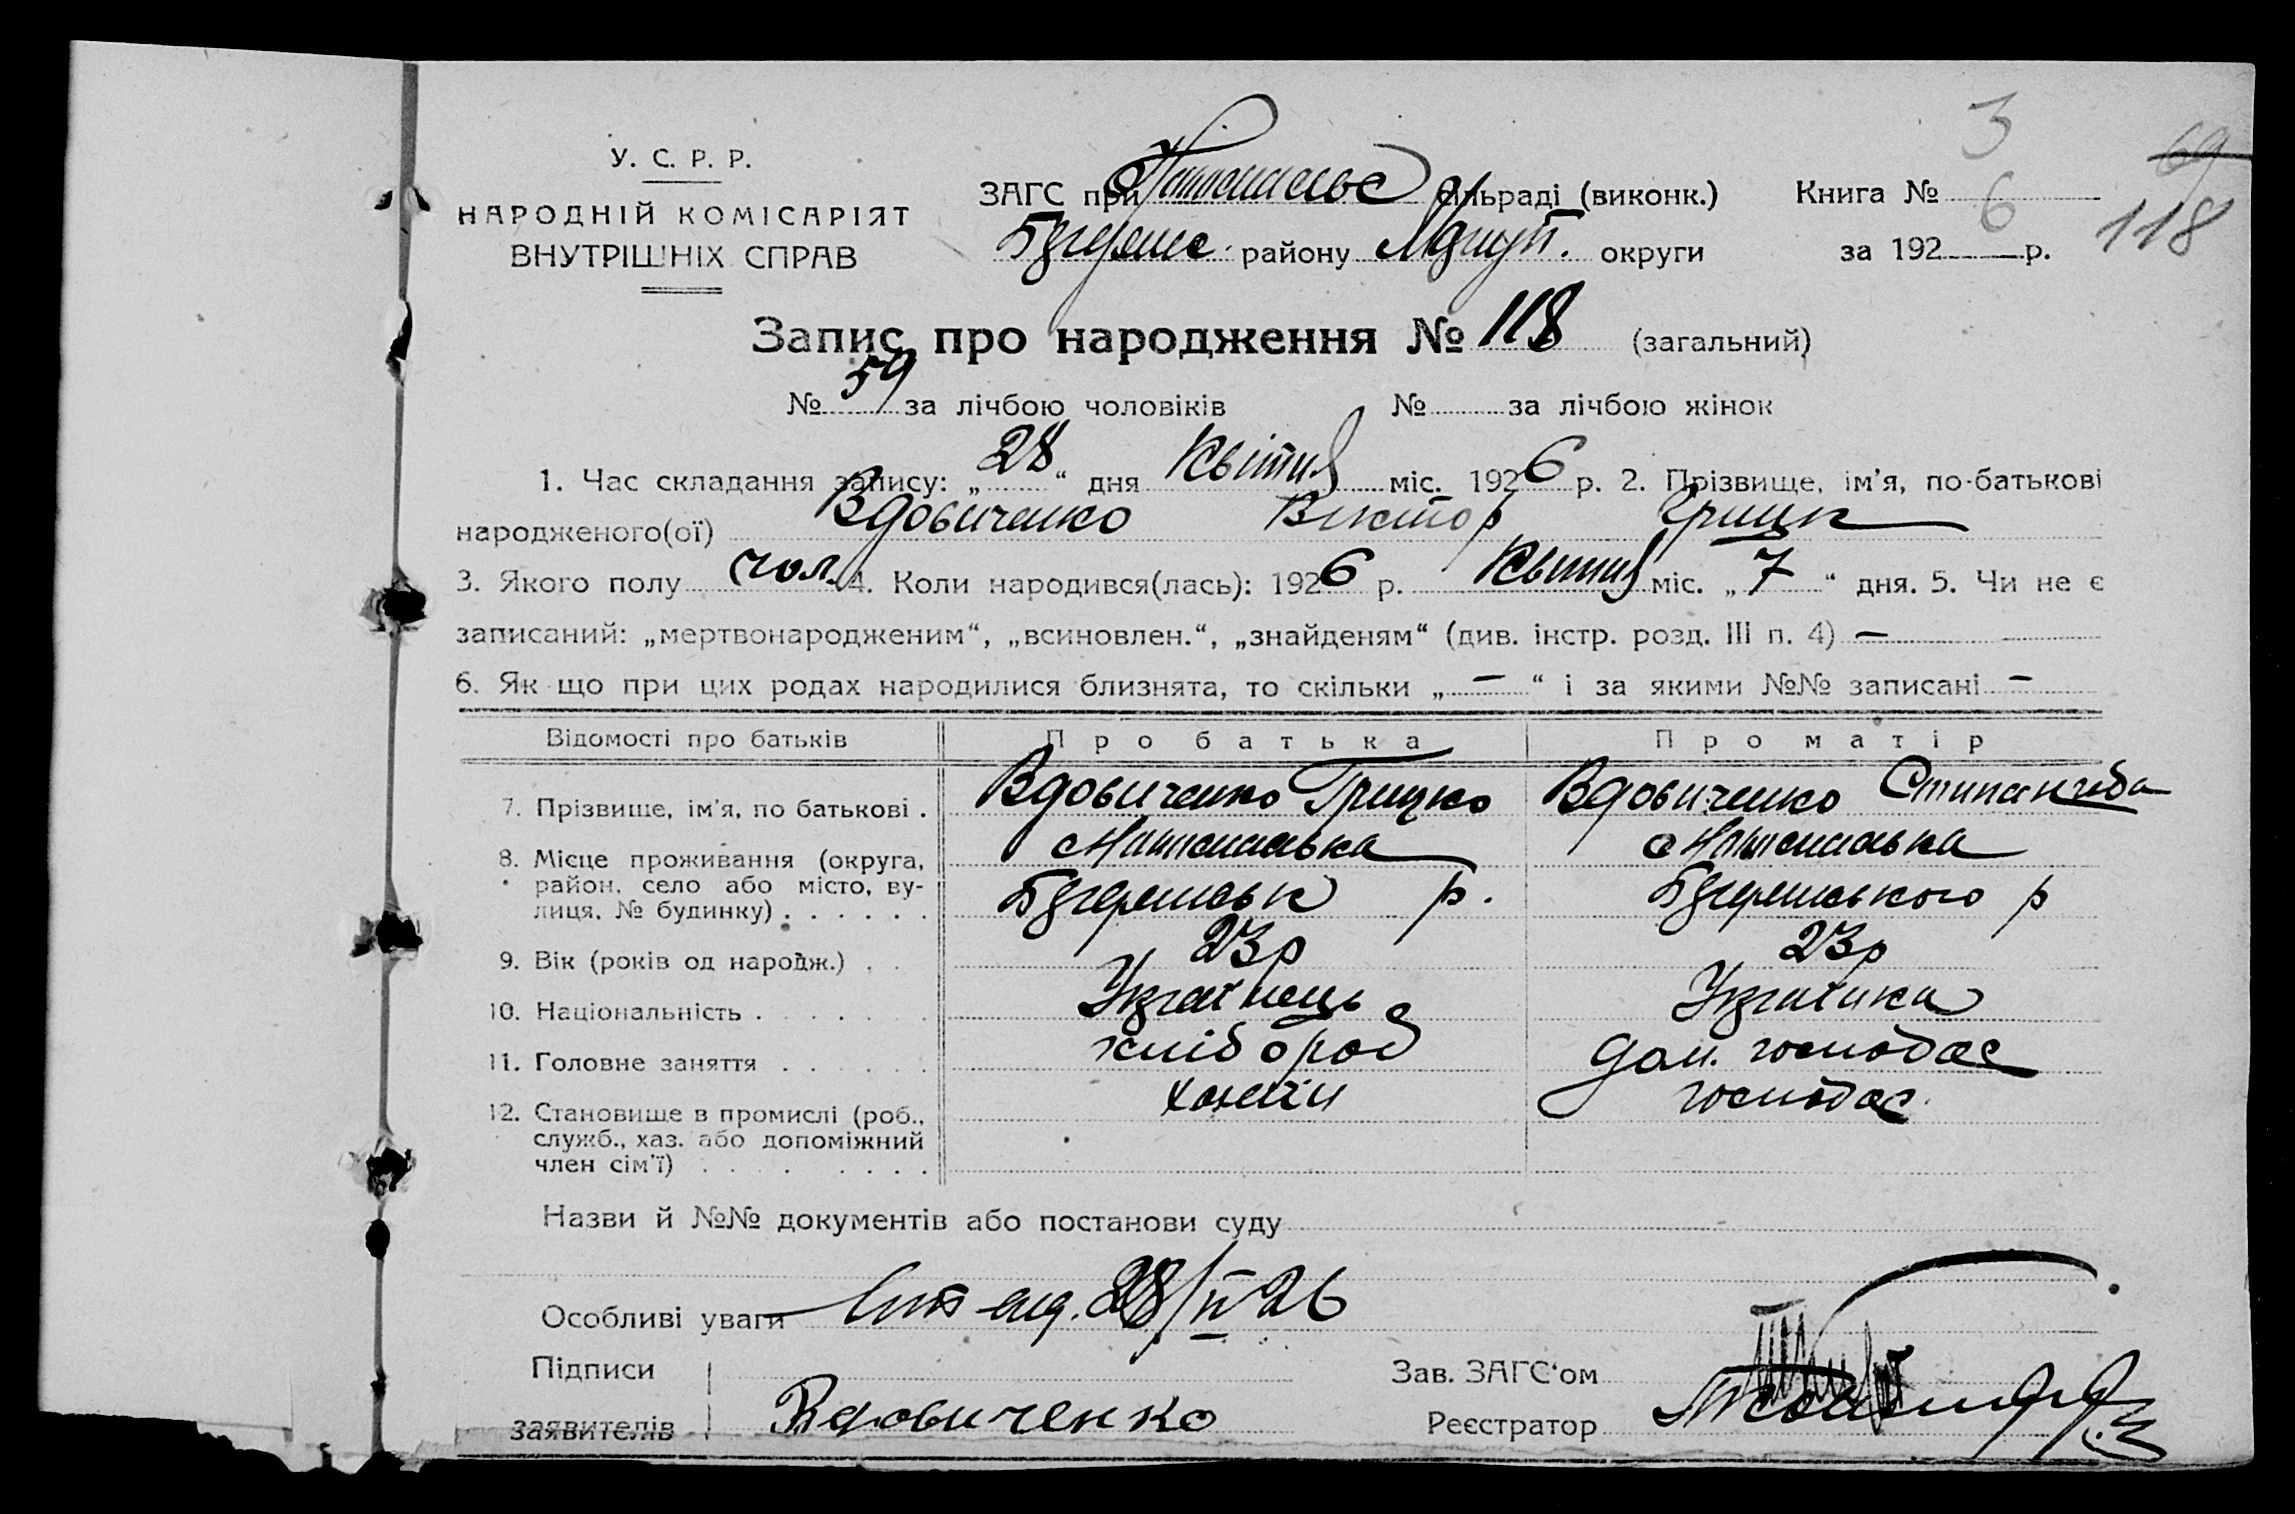 У. С. Р. Р.
НАРОДНІЙ КОМІСАРІЯТ
ВНУТРІШНІХ СПРАВ
ЗАГС при сільраді (виконк.)
району округи
Книга № 3
за 192 6 р.
69
118
Запис про народження № 118 (загальний)
№ 59 за лічбою чоловіків № за лічбою жінок
1. Час складання запису: „ 28 “ дня Квітня міс. 192 6 р. 2. Прізвище, ім'я, по-батькові
народженого(ої) Вдовиченко Віктор Грицьк
3. Якого полу чол. 4. Коли народився(лась): 192 6 р. Квітня міс. „ 7 “ дня. 5. Чи не є
записаний: „мертвонародженим“, „всиновлен.“, „знайденям“ (див. інстр. розд. III п. 4) —
6. Як що при цих родах народилися близнята, то скільки „ — “ і за якими №№ записані —
Відомості про батьків Про батька Про матір
7. Прізвище, ім'я, по батькові . Вдовиченко Грицько Вдовиченко
8. Місце проживання (округа,
район, село або місто, ву-
лиця, № будинку) . . . . . . р. р
9. Вік (років од народж.) . . 23р 23р
10. Національність . . . . . . Українець Українка
11. Головне заняття . . . . . . хлібороб дом. господас
12. Становище в промислі (роб., хазяїн господас
служб., хаз. або допоміжний
член сім'ї) . . . . . . . . .
Назви й №№ документів або постанови суду
Особливі уваги 28/IV 26
Підписи
заявителів Вдовиченко
Зав. ЗАГС'ом
Реєстратор